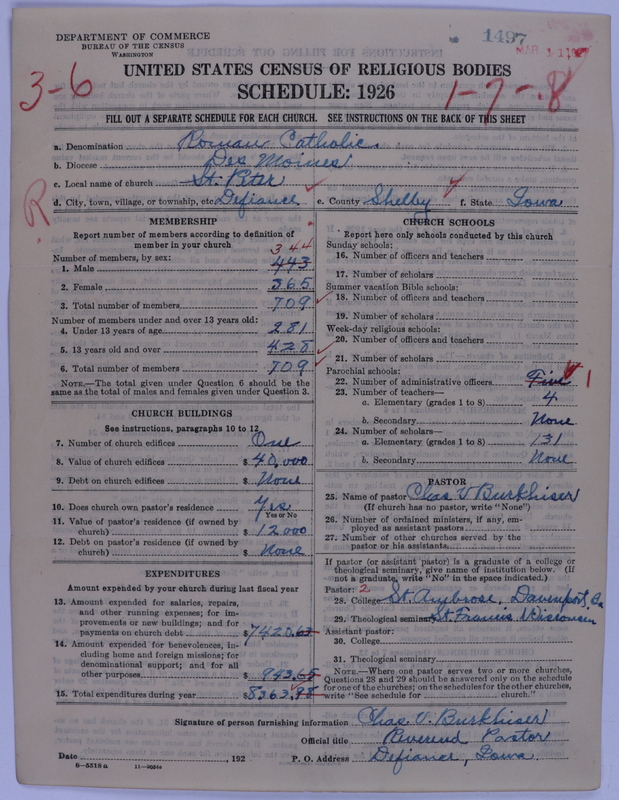 DEPARTMENT OF COMMERCE
BUREAU OF THE CENSUS
WASHINGTON
1497
MAR 31 1927
3-6
UNITED STATES CENSUS OF RELIGIOUS BODIES
SCHEDULE: 1926
1-7-8
FILL OUT A SEPARATE SCHEDULE FOR EACH CHURCH. SEE INSTRUCTIONS ON THE BACK OF THIS SHEET
a. Denomination Roman Catholic
b. Diocese Des Moines
c. Local name of church St. Peter
d. City, town, village, or township, etc. Defiance e. County Shelby f. State Iowa
R
MEMBERSHIP
Report number of members according to definition of
member in your church
344
Number of members, by sex:
1. Male 443
2. Female 365
3. Total number of members 709
Number of members under and over 13 years old:
4. Under 13 years of age 281
5. 13 years old and over 428
6. Total number of members 709
NOTE.—The total given under Question 6 should be the
same as the total of males and females given under Question 3.
CHURCH BUILDINGS
See instructions, paragraphs 10 to 12
7. Number of church edifices One
8. Value of church edifices $40,000
9. Debt on church edifices $None
10. Does church own pastor's residence Yes
Yes or No
11. Value of pastor's residence (if owned by
church) $12000
12. Debt on pastor's residence (if owned by
church) $None
EXPENDITURES
Amount expended by your church during last fiscal year
13. Amount expended for salaries, repairs,
and other running expenses; for im-
provements or new buildings; and for
payments on church debt $7420.63
14. Amount expended for benevolences, in-
cluding home and foreign missions; for
denominational support; and for all
other purposes $943.65
15. Total expenditures during year $8363.98
CHURCH SCHOOLS
Report here only schools conducted by this church
Sunday schools:
16. Number of officers and teachers
17. Number of scholars
Summer vacation Bible schools:
18. Number of officers and teachers
19. Number of scholars
Week-day religious schools:
20. Number of officers and teachers
21. Number of scholars
Parochial schools:
22. Number of administrative officers Five 1
23. Number of teachers—
a. Elementary (grades 1 to 8) 4
b. Secondary None
24. Number of scholars—
a. Elementary (grades 1 to 8) 131
b. Secondary None
PASTOR
25. Name of pastor Chas V Burkhiser
(If church has no pastor, write "None")
26. Number of ordained ministers, if any, em-
ployed as assistant pastors
27. Number of other churches served by the
pastor or his assistants
If pastor (or assistant pastor) is a graduate of a college or
theological seminary, give name of institution below. (If
not a graduate, write "No" in the space indicated.)
Pastor: 2
28. College St. Ambrose, Davenport, Ia
29. Theological seminary St Francis Wisconsin
Assistant pastor:
30. College
31. Theological seminary
NOTE.—Where one pastor serves two or more churches,
Questions 28 and 29 should be answered only on the schedule
for one of the churches; on the schedules for the other churches,
write "See schedule for church."
Signature of person furnishing information Chas. V. Burkhiser
Official title Reverend Pastor
Date , 192 P. O. Address Defiance, Iowa.
8—5518a 11—9054a